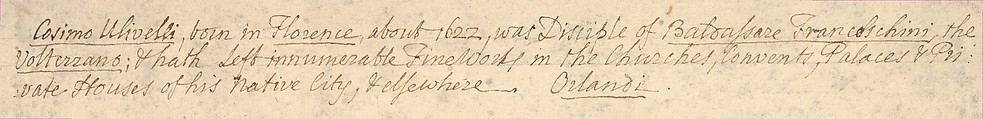 Cosimo Ulivelli, born in Florence, about 1622, was Disciple of Baldassare Franceschini, the
Volterzano; & hath left innumerable Fine Works in the Churches, Convents, Palaces & Pri:
vate Houses of his Native City, & elsewhere. Orlandi.